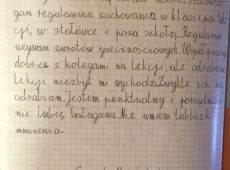 gam regulaminu zachowania w klasie na lek
cji, w stołówce i poza szkołą. Regularnie
używam zwrotów grzecznościowych. Współpracuję
dobrze z kolegami na lekcji, ale odrabianie
lekcji niezbyt mi wychodzi. Zwykle ich nie
odrabiam. Jestem punktualny i porządny
nie lubię bałaganu. Nie umiem tabliczki
mnożenia.